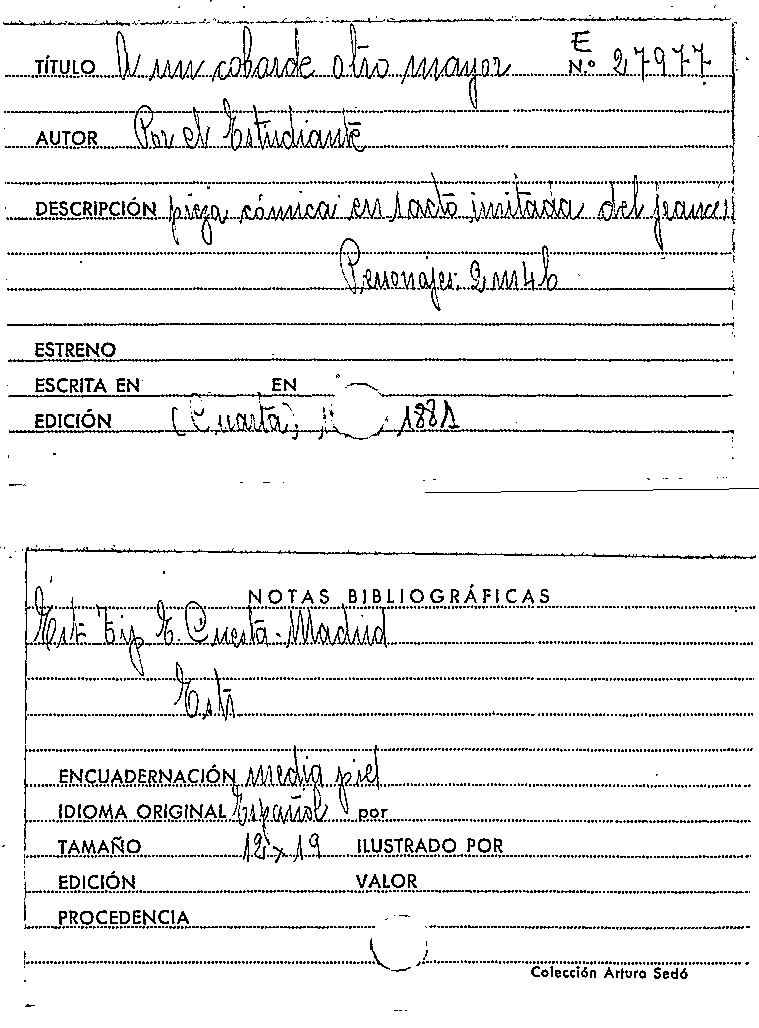 TÍTULO A un cobarde otro mayor E N.º 27977
AUTOR Por el Estudiante
DESCRIPCIÓN pieza cómica en 1 acto imitada del francés
Personajes: 2 m 4 h
ESTRENO
ESCRITA EN EN
EDICIÓN (Cuarta) 1881
NOTAS BIBLIOGRÁFICAS
Est. Tip E. Cuesta - Madrid
ENCUADERNACIÓN media piel
IDIOMA ORIGINAL Español por
TAMAÑO 12 x 19 ILUSTRADO POR
EDICIÓN VALOR
PROCEDENCIA
Colección Arturo Sedó